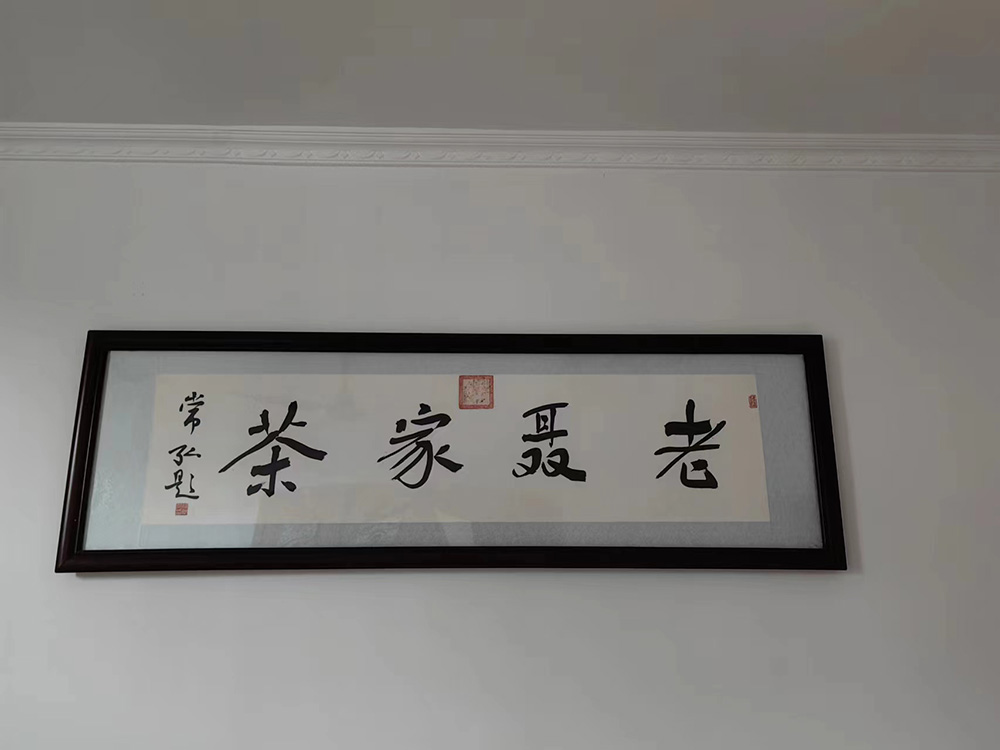 老聂家茶
常弘题